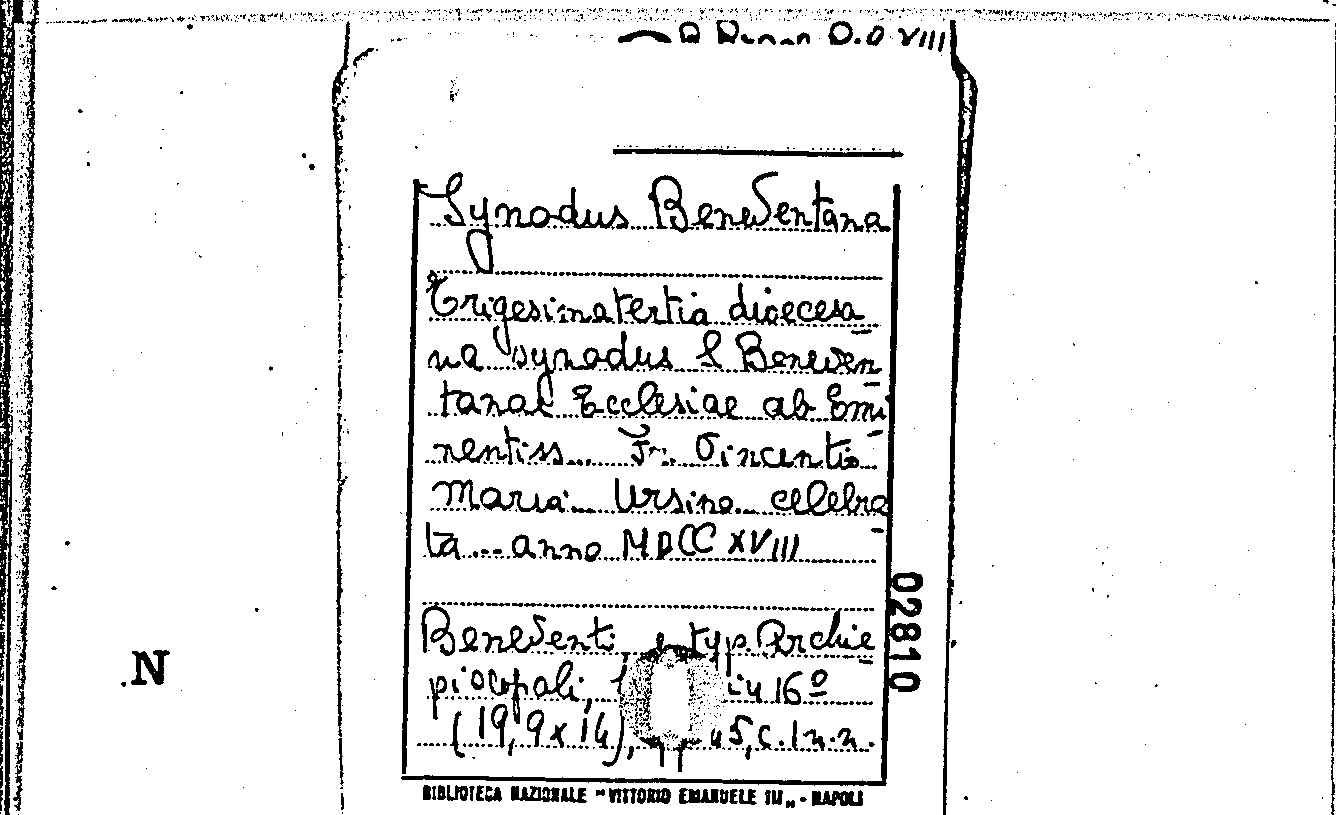 VIII
Synodus Beneventana
Trigesimatertia dioecesa
na synodus S Beneven
tanae Ecclesiae ab Emi
nentiss... Fr. Vincentio
Maria... Ursino... celebra
ta... anno MDCCXVIII
Beneventi, typ. Archie
piscopali, in 16º
(19,9 x 14), 45, c. 1 n.n.
02810
N
BIBLIOTECA NAZIONALE "VITTORIO EMANUELE III" - NAPOLI